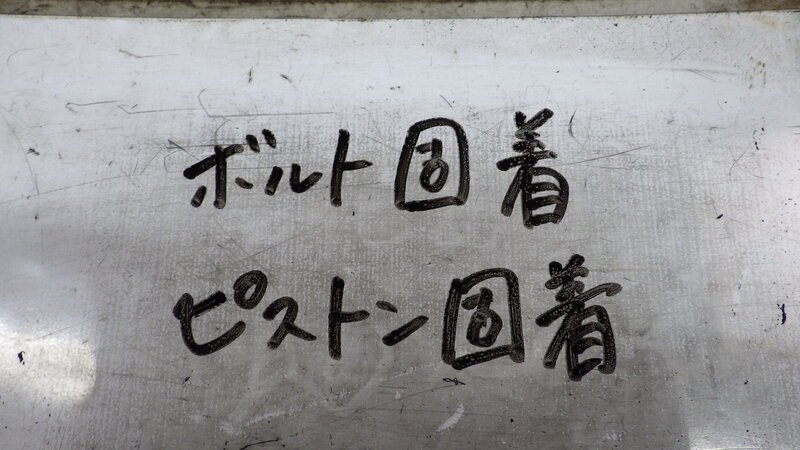 ボルト固着
ピストン固着